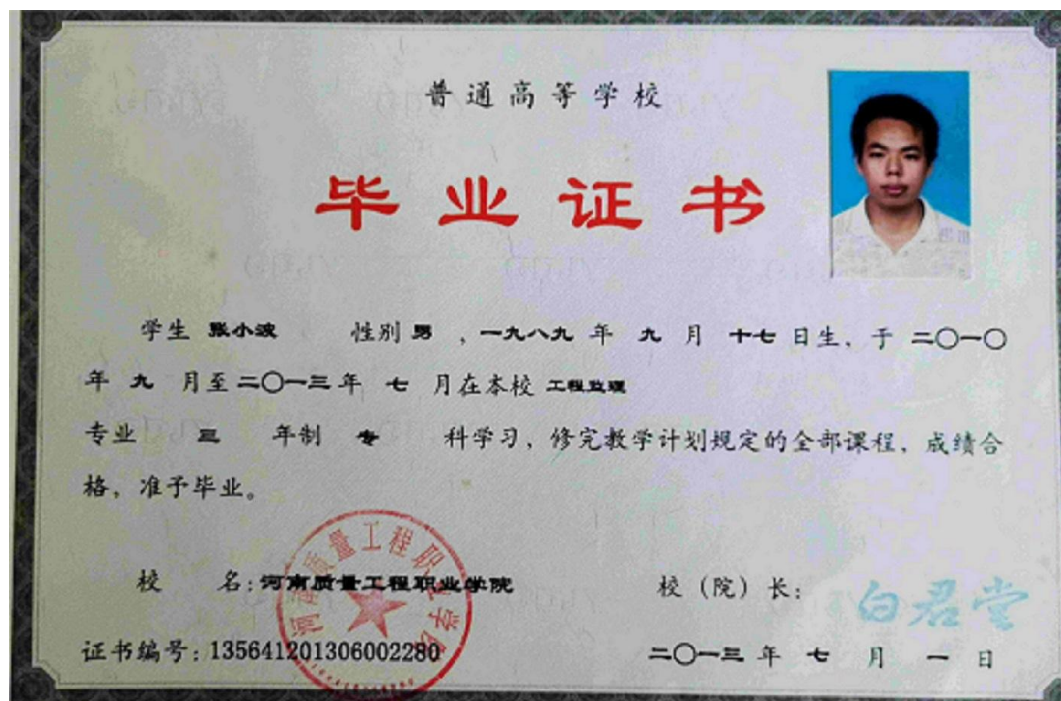 普通高等学校
毕业证书
学生 张小波 性别 男 ，一九八九 年 九 月 十七 日生，于 二〇一〇
年 九 月至 二〇一三 年 七 月在本校 工程监理
专业 三 年制 专 科学习，修完教学计划规定的全部课程，成绩合
格，准予毕业。
校 名：河南质量工程职业学院 校（院）长：白君堂
河南质量工程职业学院
证书编号：135641201306002280 二〇一三 年 七 月 一 日